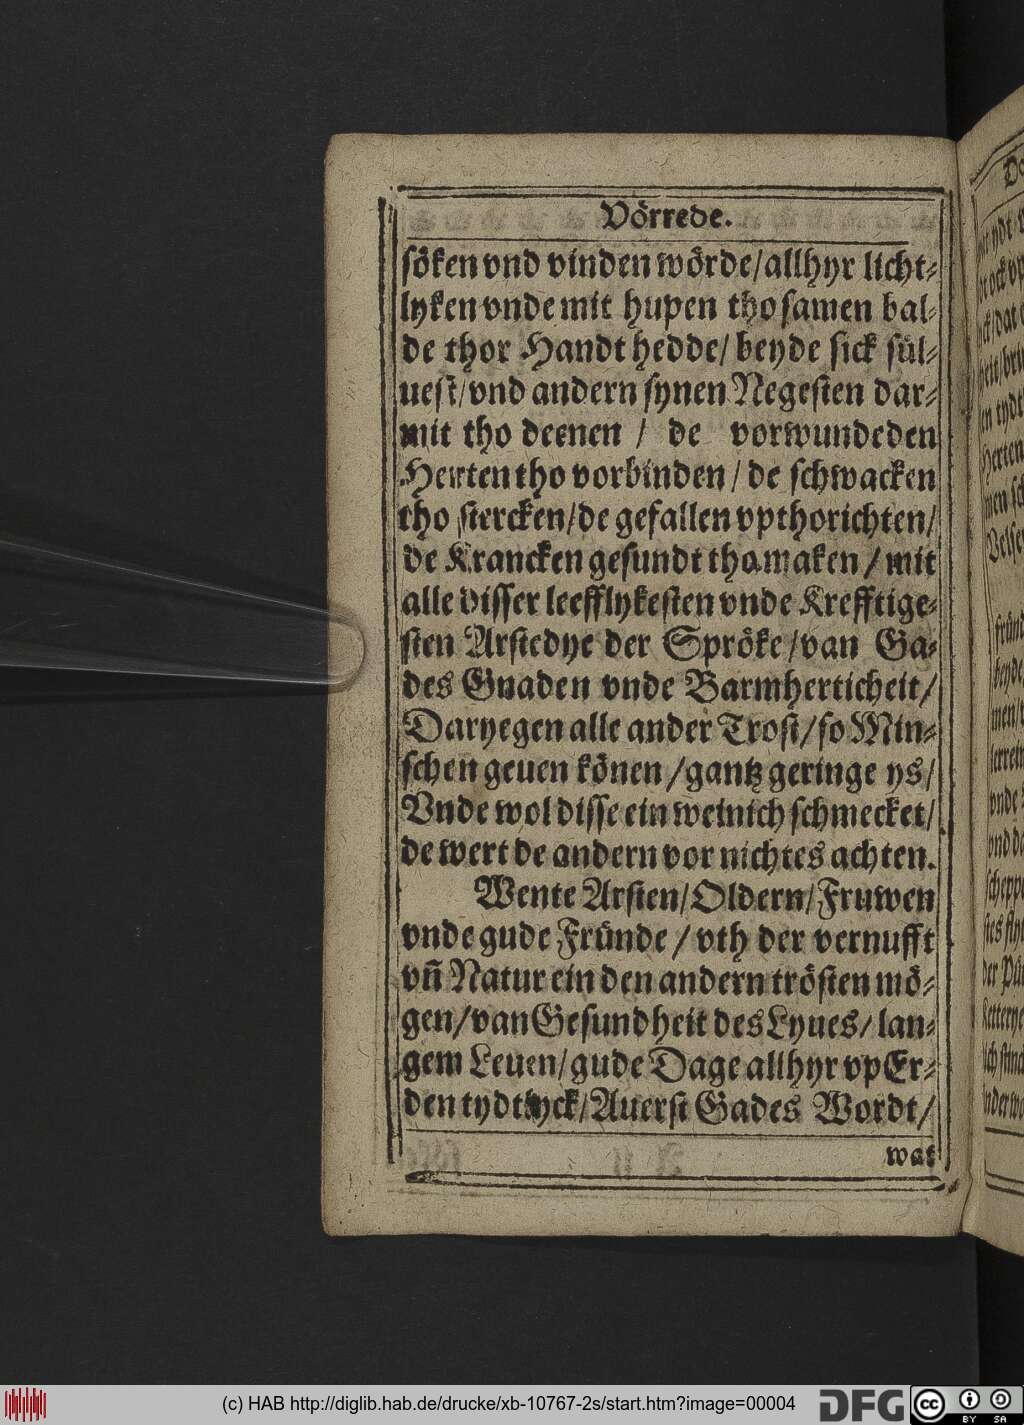 Vörrede.
söken vnd vinden wörde/allhyr licht⸗
lyken vnde mit hupen tho samen bal⸗
de thor Handt hedde/ beyde sick sül⸗
uest/vnd andern synen Negesten dar⸗
mit tho deenen / de vorwundeden
Herten tho vorbinden / de schwacken
tho stercken/de gefallen vpthorichten/
de Krancken gesundt tho maken / mit
alle disser leefflykesten vnde Krefftige⸗
sten Arstedye der Spröke/van Ga⸗
des Gnaden vnde Barmherticheit/
Daryegen alle ander Trost/so Min⸗
schen geuen könen /gantz geringe ys/
Vnde wol disse ein weinich schmecket/
de wert de andern vor nichtes achten.
Wente Arsten/Oldern/Fruwen
vnde gude Fründe / vth der vernufft
vñ Natur ein den andern trösten mö⸗
gen/van Gesundheit des Lyues/lan⸗
gem Leuen/gude Dage allhyr vp Er⸗
den tydtlyck/Auerst Gades Wordt/
wat
(c) HAB http://diglib.hab.de/drucke/xb-10767-2s/start.htm?image=00004
DFG
cc
BY SA